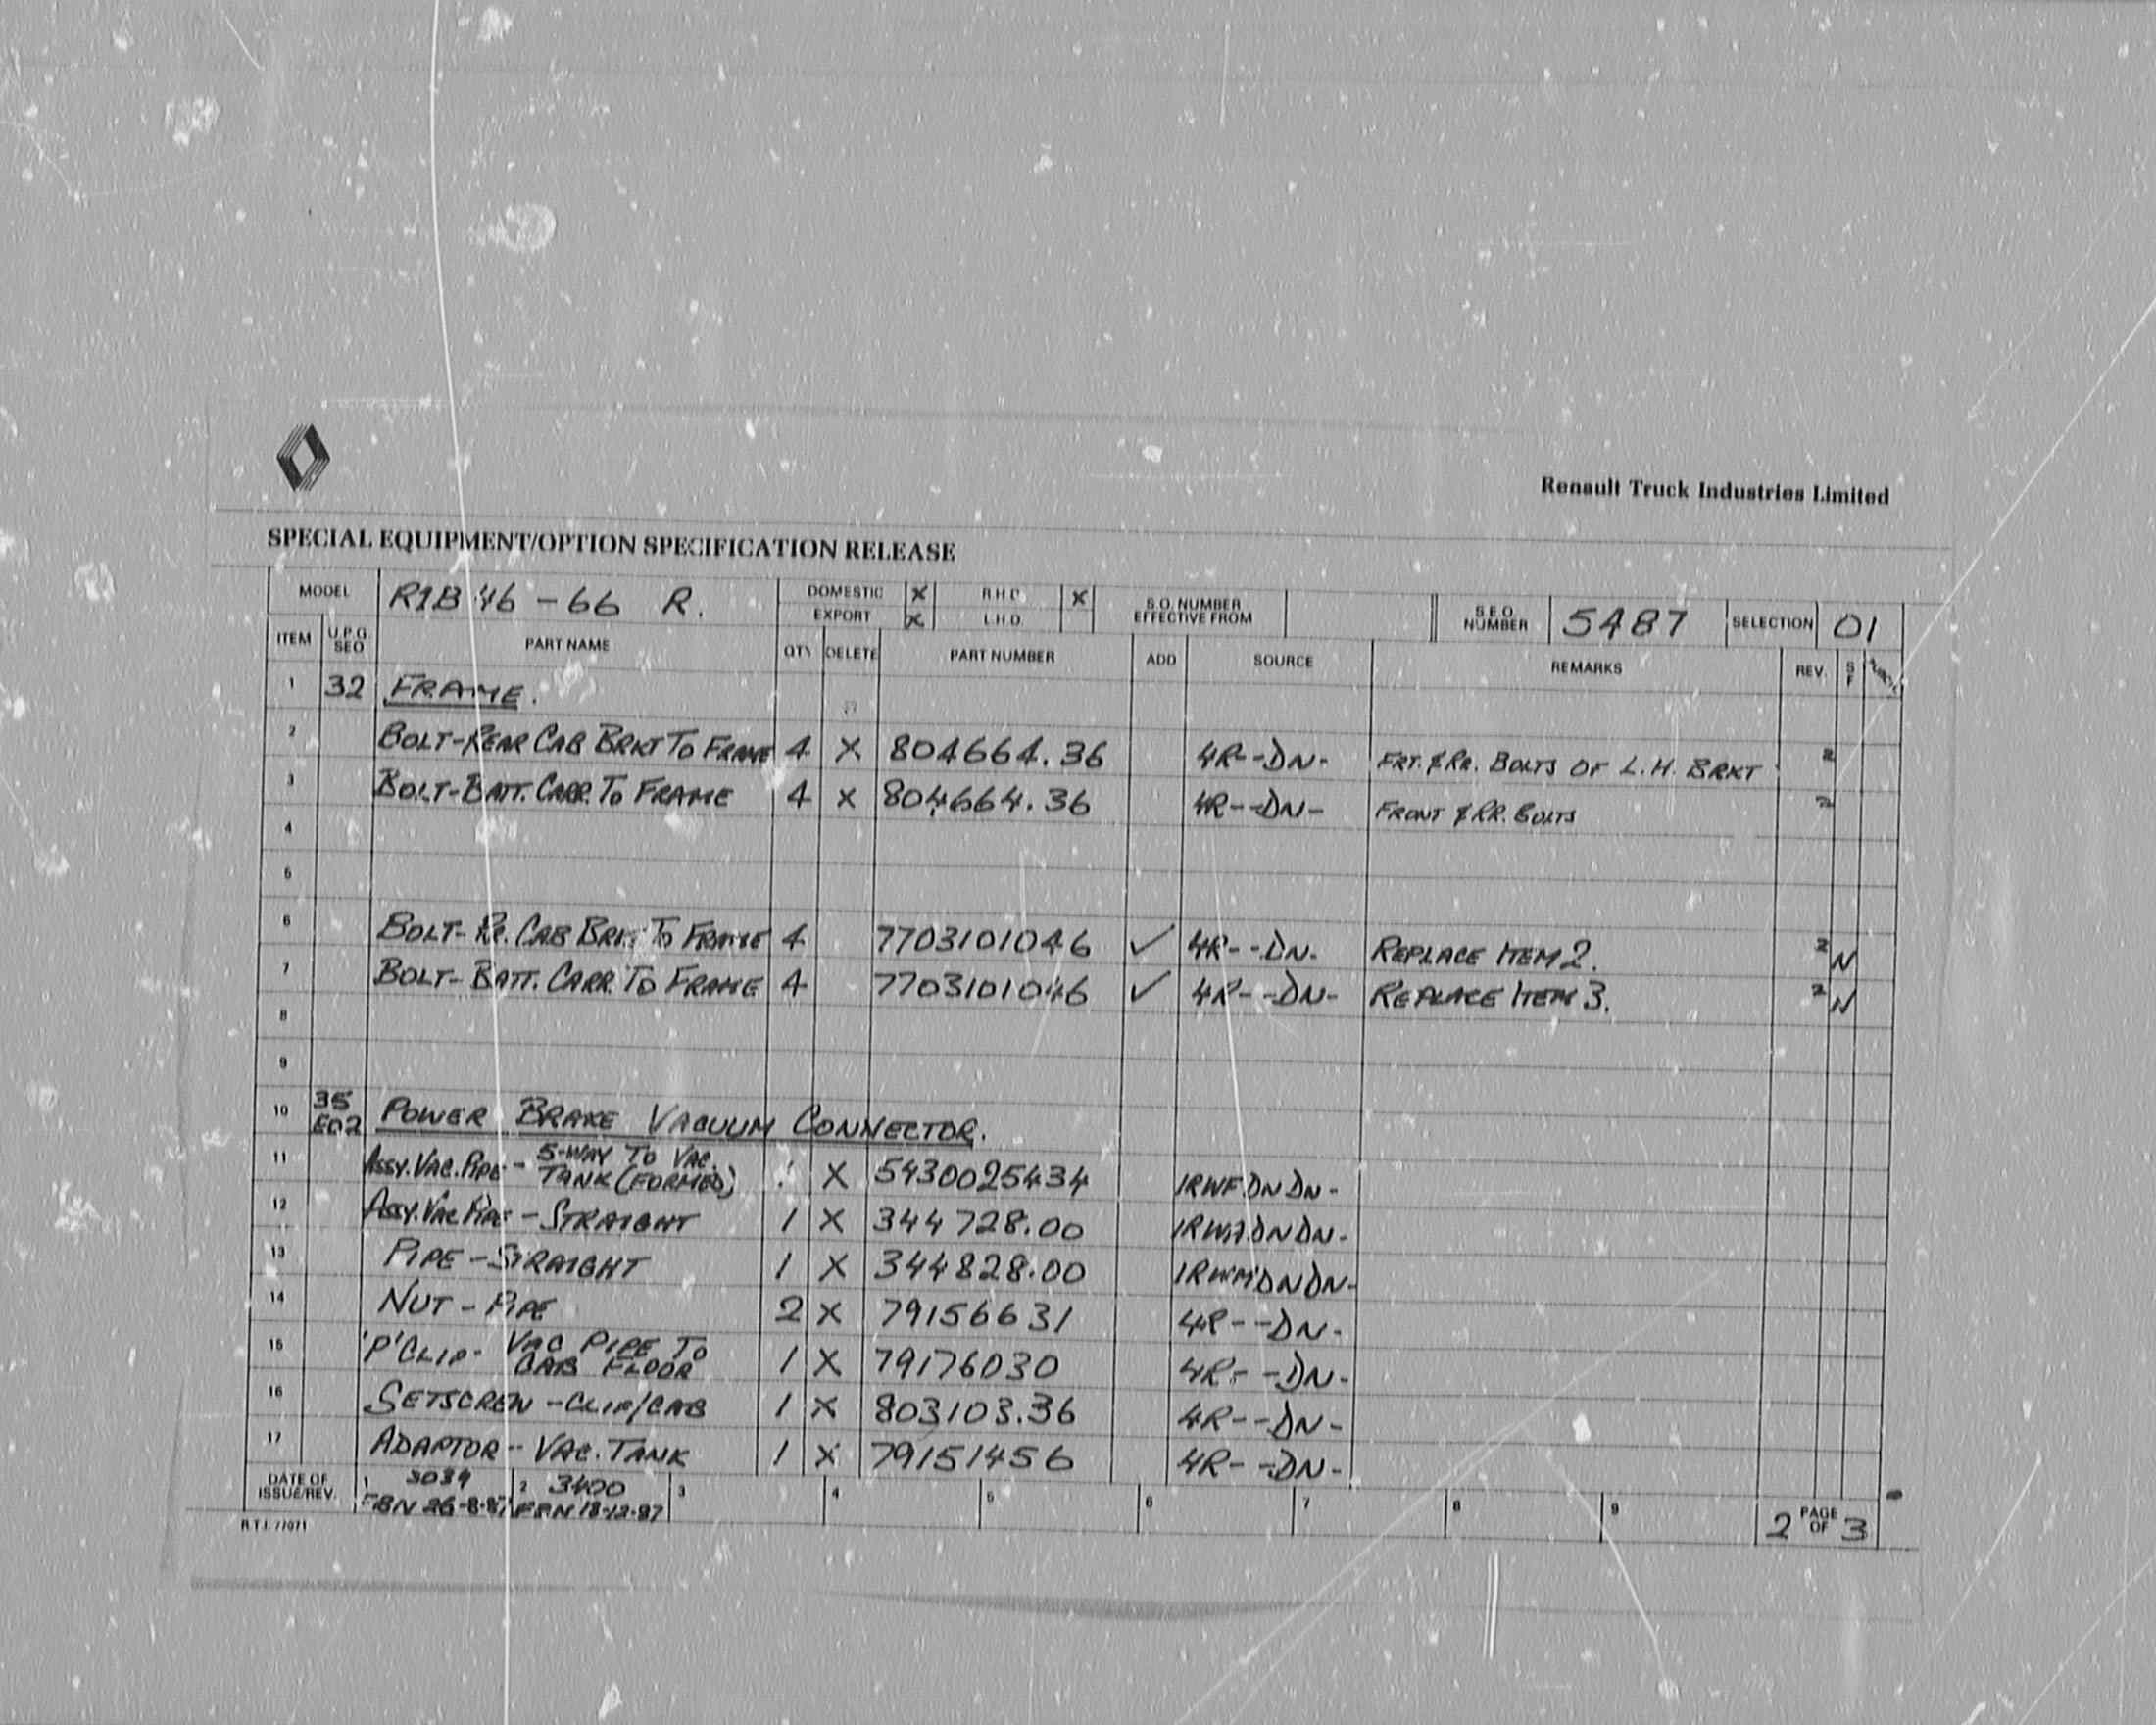 Renault Truck Industries Limited
SPECIAL EQUIPMENT/OPTION SPECIFICATION RELEASE
MODEL R1B 46-66 R. DOMESTIC X R.H.D. X S.O. NUMBER EFFECTIVE FROM S.E.O. NUMBER 5487 SELECTION 01
EXPORT X L.H.D.
ITEM U.P.G SEO PART NAME QTY DELETE PART NUMBER ADD SOURCE REMARKS REV. S F
1 32 FRAME.
2 BOLT-REAR CAB BRKT TO FRAME 4 X 804664.36 4R--DN- FRT. & RR. BOLTS OF L.H. BRKT 2
3 BOLT-BATT. CARR. TO FRAME 4 X 804664.36 4R--DN- FRONT & RR. BOLTS 2
4
5
6 BOLT-RR. CAB BRKT TO FRAME 4 7703101046 ✓ 4R--DN- REPLACE ITEM 2. 2 N
7 BOLT-BATT. CARR. TO FRAME 4 7703101046 ✓ 4R--DN- REPLACE ITEM 3. 2 N
8
9
10 35 E02 POWER BRAKE VACUUM CONNECTOR.
11 ASSY. VAC. PIPE - 5-WAY TO VAC. TANK (FORMED) X 5430025434 1RWFDNDN-
12 ASSY. VAC PIPE - STRAIGHT 1 X 344728.00
13 PIPE - STRAIGHT 1 X 344828.00 1RWMDNDN-
14 NUT - PIPE 2 X 79156631 4R--DN-
15 'P' CLIP - VAC PIPE TO CAB FLOOR 1 X 79176030 4R--DN-
16 SETSCREW - CLIP/CAB 1 X 803103.36 4R--DN-
17 ADAPTOR - VAC. TANK 1 X 79151456 4R--DN-
DATE OF ISSUE/REV. 1 3039 2 3400 3 4 5 6 7 8 9 2 PAGE OF 3
EBN 26-8-87 EBN 18-12-87
R.T.I. 77071